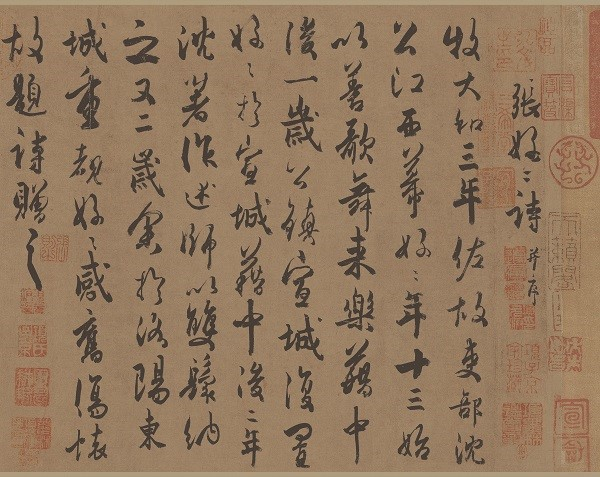 張好〻詩 并序
牧大和三年佐故吏部沈
公江西幕好〻年十三始
以善歌舞來樂籍中
後一歲公鎮宣城復置
好〻於宣城籍中後二年
沈著作述師以雙鬟納
之又二歲余於洛陽東
城重覩好〻感舊傷懷
故題詩贈之